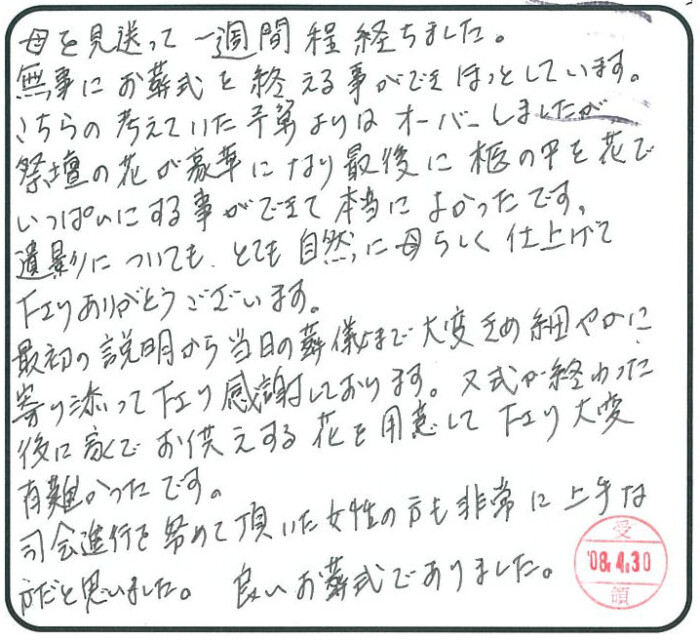 母を見送って一週間程経ちました。
無事にお葬式を終える事ができほっとしています。
こちらの考えていた予算よりはオーバーしましたが
祭壇の花が豪華になり最後に柩の中を花で
いっぱいにする事ができて本当によかったです。
遺影についても、とても自然に母らしく仕上げて
下さりありがとうございます。
最初の説明から当日の葬儀まで大変きめ細やかに
寄り添って下さり感謝しております。又式が終わった
後に家でお供えする花を用意して下さり大変
有難かったです。
司会進行を努めて頂いた女性の方も非常に上手な
方だと思いました。 良いお葬式でありました。
受
'08.4.30
領